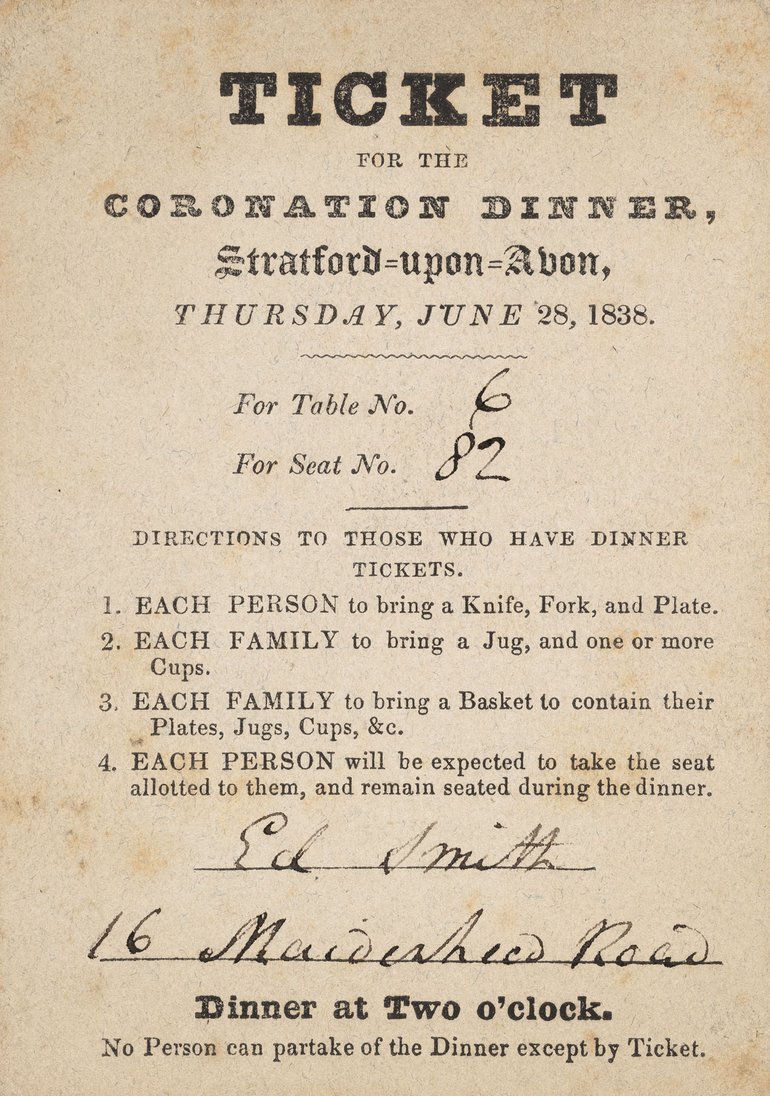 TICKET
FOR THE
CORONATION DINNER,
Stratford=upon=Avon,
THURSDAY, JUNE 28, 1838.
For Table No. 6
For Seat No. 82
DIRECTIONS TO THOSE WHO HAVE DINNER
TICKETS.
1. EACH PERSON to bring a Knife, Fork, and Plate.
2. EACH FAMILY to bring a Jug, and one or more
Cups.
3. EACH FAMILY to bring a Basket to contain their
Plates, Jugs, Cups, &c.
4. EACH PERSON will be expected to take the seat
allotted to them, and remain seated during the dinner.
Ed Smith
16 Maidenhead Road
Dinner at Two o'clock.
No Person can partake of the Dinner except by Ticket.